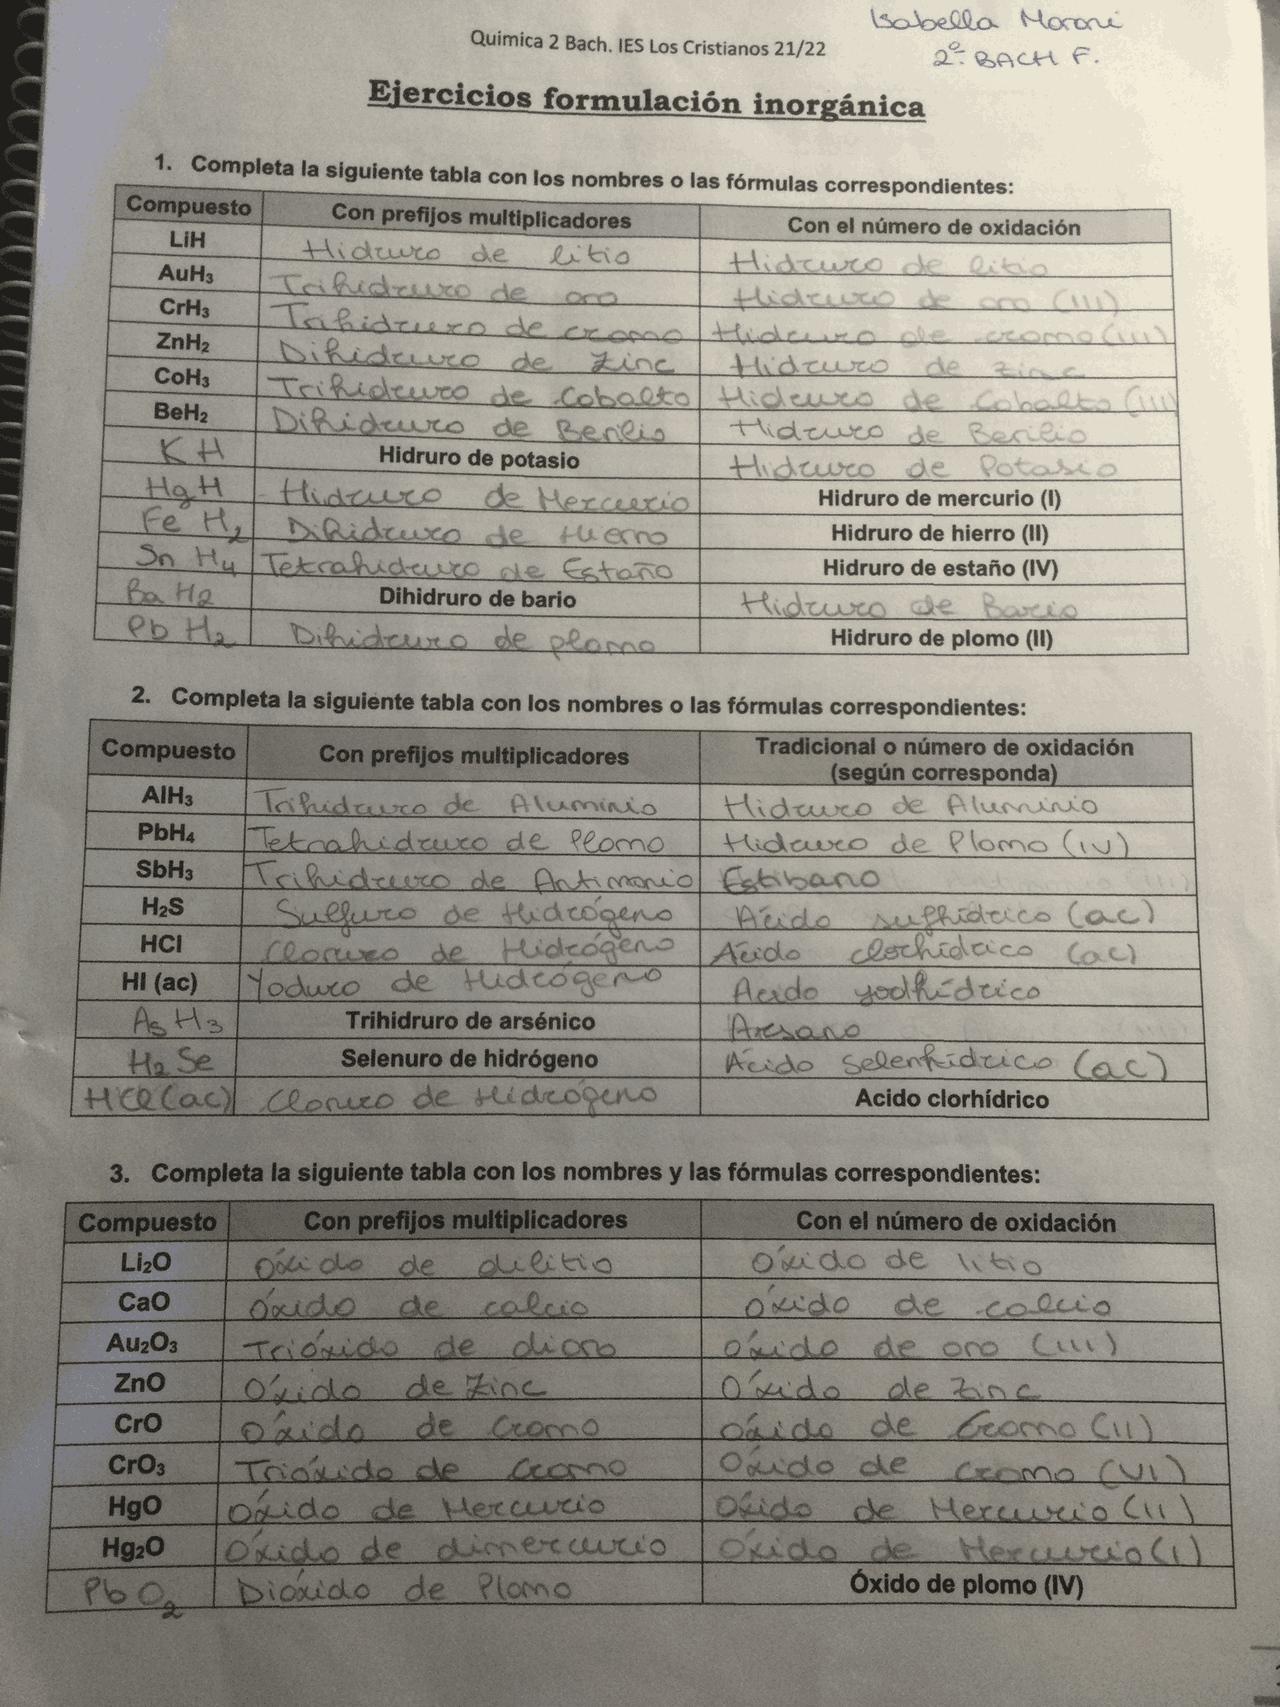 Isabella Moroni
Quimica 2 Bach. IES Los Cristianos 21/22
2º BACH F.
Ejercicios formulación inorgánica
1. Completa la siguiente tabla con los nombres o las fórmulas correspondientes:
Compuesto Con prefijos multiplicadores Con el número de oxidación
LiH Hidruro de litio Hidruro de litio
AuH₃ Trihidruro de oro Hidruro de oro (III)
CrH₃ Trihidruro de cromo Hidruro de cromo (III)
ZnH₂ Dihidruro de Zinc Hidruro de zinc
CoH₃ Trihidruro de Cobalto Hidruro de Cobalto (III)
BeH₂ Dihidruro de Berilio Hidruro de Berilio
KH Hidruro de potasio Hidruro de Potasio
HgH Hidruro de Mercurio Hidruro de mercurio (I)
FeH₂ Dihidruro de Hierro Hidruro de hierro (II)
SnH₄ Tetrahidruro de Estaño Hidruro de estaño (IV)
BaH₂ Dihidruro de bario Hidruro de Bario
PbH₂ Dihidruro de plomo Hidruro de plomo (II)
2. Completa la siguiente tabla con los nombres o las fórmulas correspondientes:
Compuesto Con prefijos multiplicadores Tradicional o número de oxidación
(según corresponda)
AlH₃ Trihidruro de Aluminio Hidruro de Aluminio
PbH₄ Tetrahidruro de Plomo Hidruro de Plomo (IV)
SbH₃ Trihidruro de Antimonio Estibano
H₂S Sulfuro de Hidrógeno Ácido sulfhídrico (ac)
HCl Cloruro de Hidrógeno Ácido clorhídrico (ac)
HI (ac) Yoduro de Hidrógeno Acido yodhídrico
AsH₃ Trihidruro de arsénico Aresano
H₂Se Selenuro de hidrógeno Ácido Selenhídrico (ac)
HCl(ac) Cloruro de Hidrógeno Acido clorhídrico
3. Completa la siguiente tabla con los nombres y las fórmulas correspondientes:
Compuesto Con prefijos multiplicadores Con el número de oxidación
Li₂O Óxido de dilitio Óxido de litio
CaO Óxido de calcio Óxido de calcio
Au₂O₃ Trióxido de dioro Óxido de oro (III)
ZnO Óxido de Zinc Óxido de Zinc
CrO Óxido de Cromo Óxido de Cromo (II)
CrO₃ Trióxido de Cromo Óxido de cromo (VI)
HgO Óxido de Mercurio Óxido de Mercurio (II)
Hg₂O Óxido de dimercurio Óxido de Mercurio (I)
PbO₂ Dióxido de Plomo Óxido de plomo (IV)